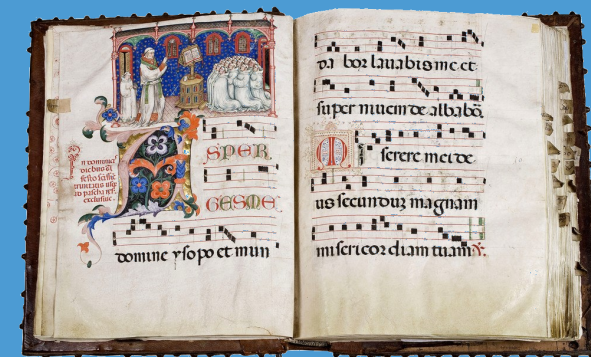 In
diebus
festo
trinitatis usq
pascha
exclusiue
ASPER
GES ME.
domine ysopo et mun
da bor lauabis me et
super niuem de alba bor
Miserere mei de
us secundum magnam
misericordiam tuam. V.